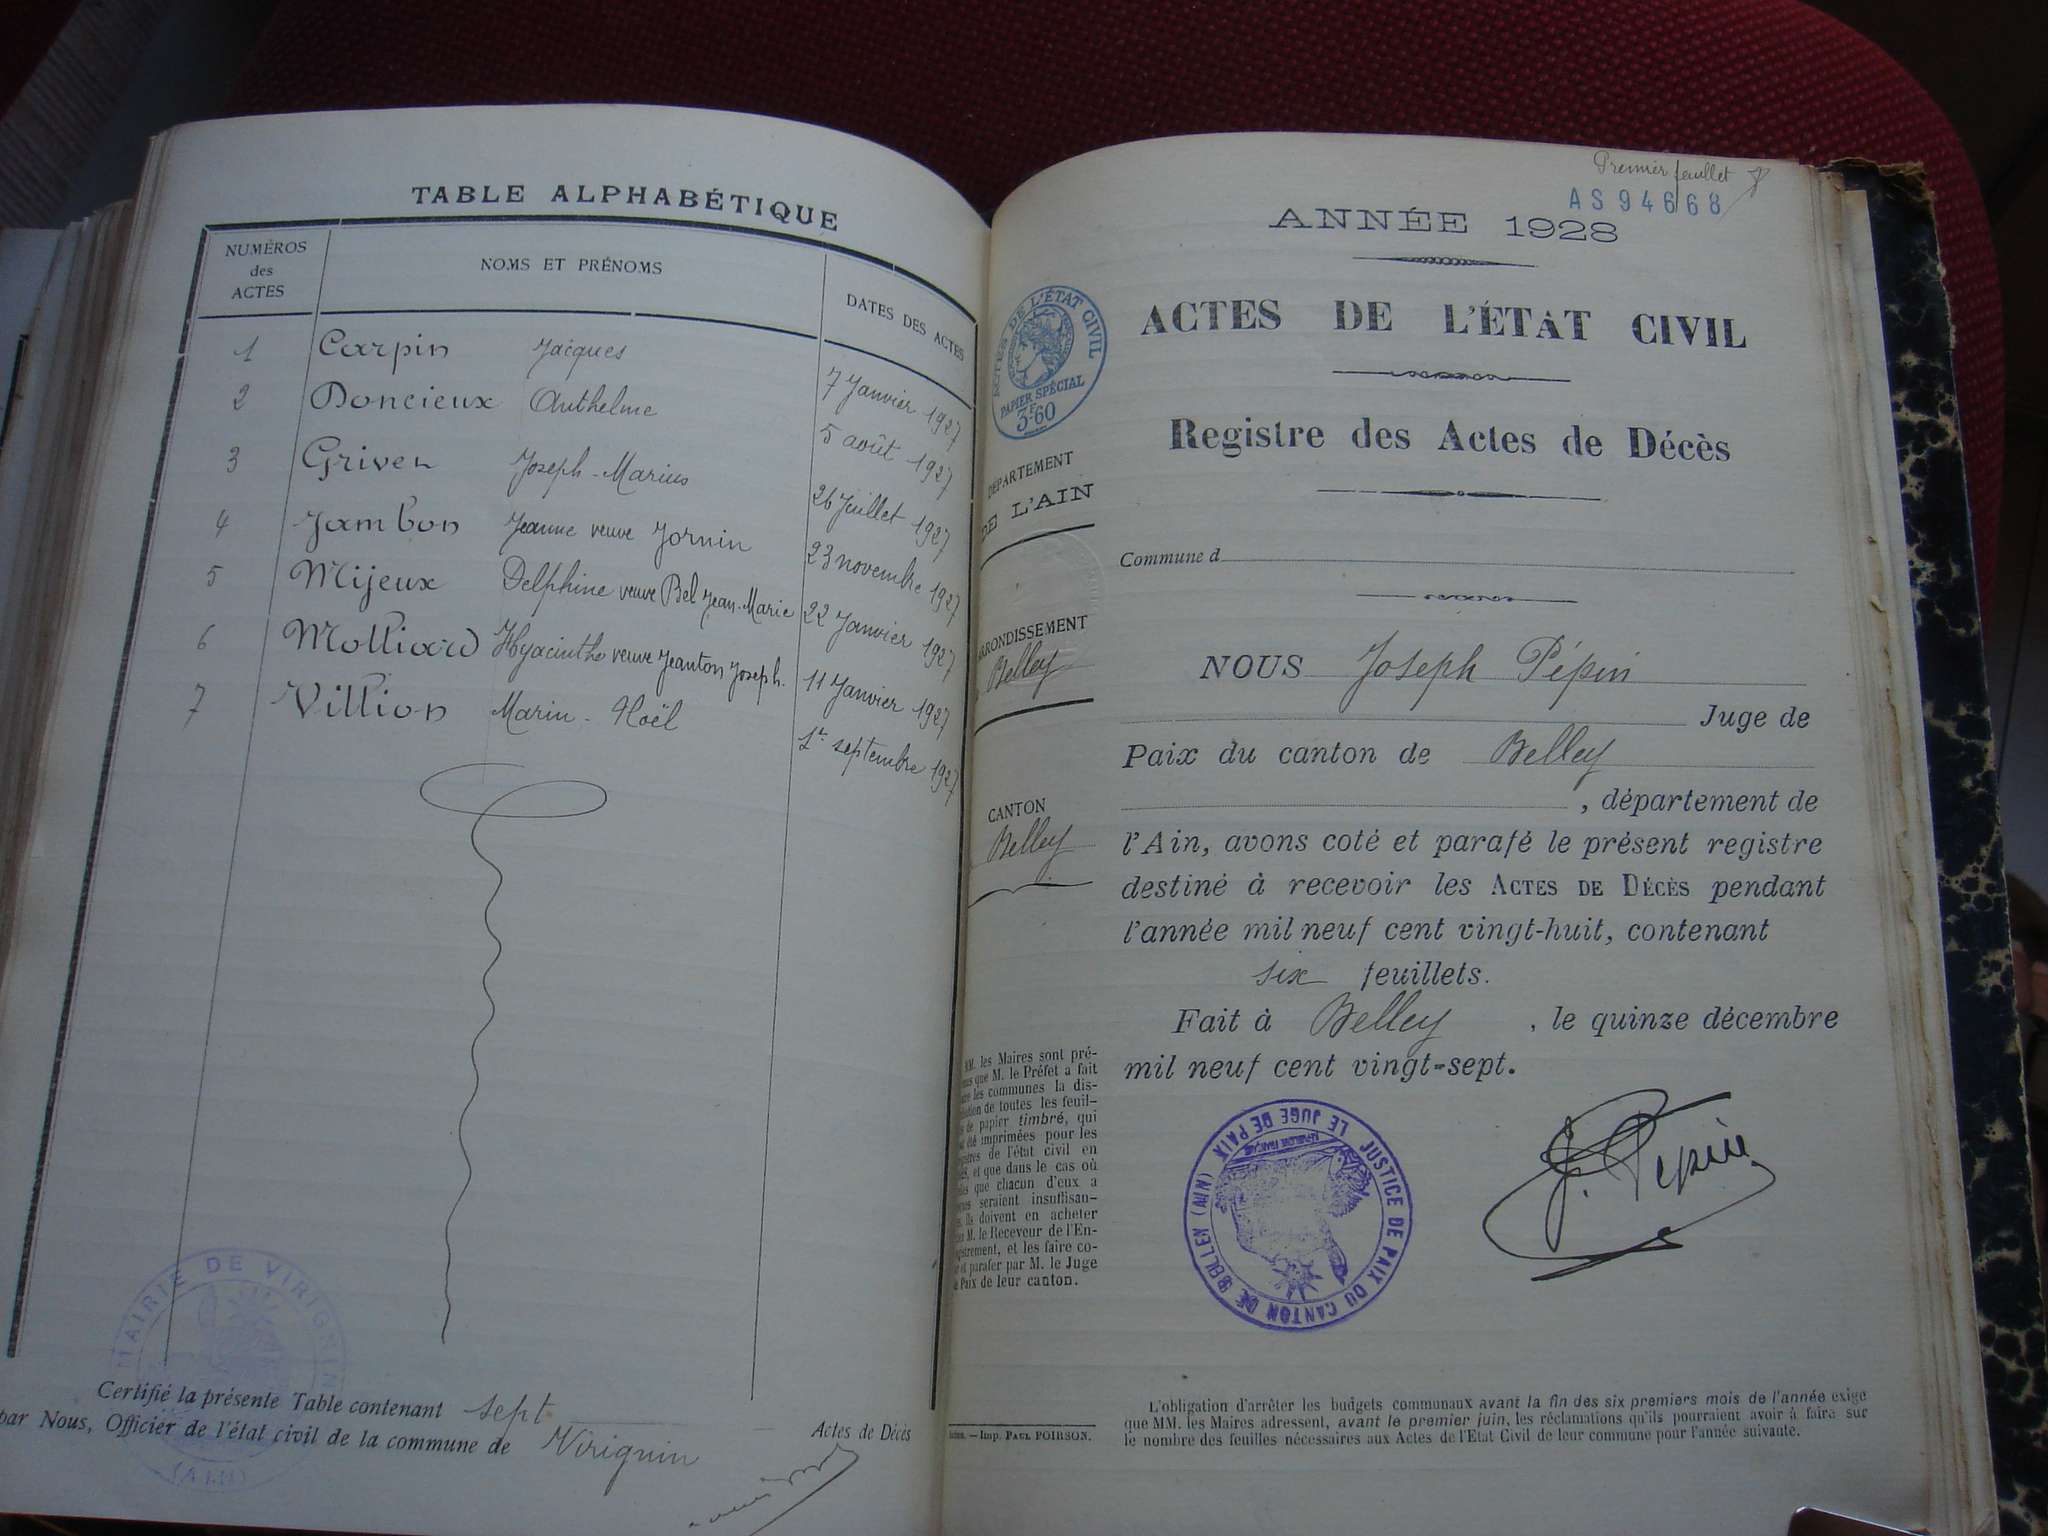 TABLE ALPHABÉTIQUE
NUMÉROS des ACTES
NOMS ET PRÉNOMS
DATES DES ACTES
1 Carpin Jacques 7 Janvier 1927
2 Doncieux Anthelme 5 août 1927
3 Griven Joseph-Marius 26 Juillet 1927
4 Jambon Jeanne veuve Jornin 23 novembre 1927
5 Mijeux Delphine veuve Bel Jean-Marie 22 Janvier 1927
6 Molliard Hyacinthe veuve Jeanton Joseph. 11 Janvier 1927
7 Villion Marin-Noël 1er septembre 1927
MAIRIE DE VIRIGNIN
(AIN)
Certifié la présente Table contenant sept Actes de Décès
par Nous, Officier de l'état civil de la commune de Virignin
Premier feuillet
AS94668
ANNÉE 1928
ACTES DE L'ÉTAT CIVIL
PAPIER SPÉCIAL
3F60
ACTES DE L'ÉTAT CIVIL
Registre des Actes de Décès
DÉPARTEMENT
DE L'AIN
Commune d
ARRONDISSEMENT
Belley
CANTON
Belley
NOUS Joseph Pépin
Juge de
Paix du canton de Belley
, département de
l'Ain, avons coté et parafé le présent registre
destiné à recevoir les ACTES DE DÉCÈS pendant
l'année mil neuf cent vingt-huit, contenant
six feuillets.
Fait à Belley, le quinze décembre
mil neuf cent vingt-sept.
MM. les Maires sont pré-
que M. le Préfet a fait
les communes la dis-
de toutes les feuil-
de papier timbré, qui
été imprimées pour les
de l'état civil en
et que dans le cas où
que chacun d'eux a
seraient insuffisan-
ils doivent en acheter
M. le Receveur de l'En-
et les faire co-
et parafer par M. le Juge
de Paix de leur canton.
JUSTICE DE PAIX DU CANTON DE BELLEY (AIN) LE JUGE DE PAIX
RÉPUBLIQUE FRANÇAISE
J. Pépin
Imp. PAUL POIRSON.
L'obligation d'arrêter les budgets communaux avant la fin des six premiers mois de l'année exige
que MM. les Maires adressent, avant le premier juin, les réclamations qu'ils pourraient avoir à faire sur
le nombre des feuilles nécessaires aux Actes de l'Etat Civil de leur commune pour l'année suivante.